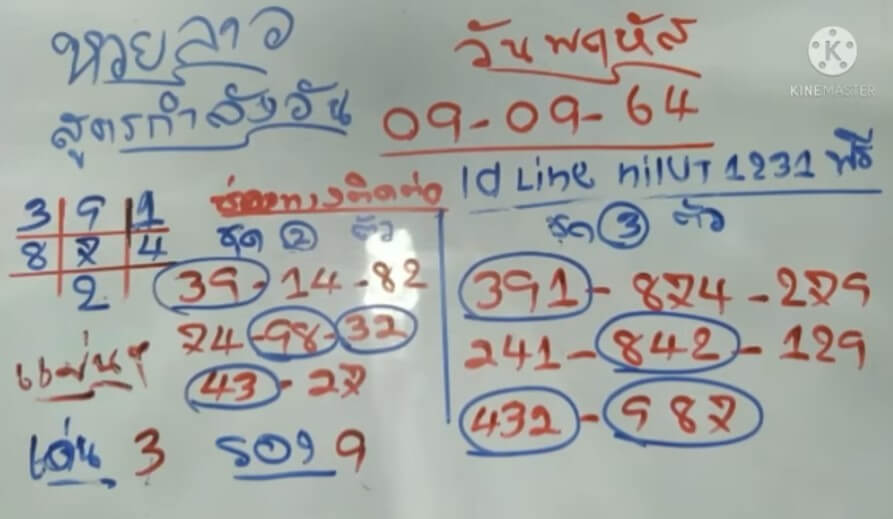 หวยลาว
วันพฤหัส
KINEMASTER
สูตรกำลังวัน
09-09-64
ช่องทางติดต่อ
Id Line nilUT1231 ฟรี
3 9 1
8 7 4
2
ชุด 2 ตัว
39-14-82
74-98-32
43-27
ชุด 3 ตัว
391-874-279
241-842-129
432-987
แม่นๆ
เด่น 3 รอง 9